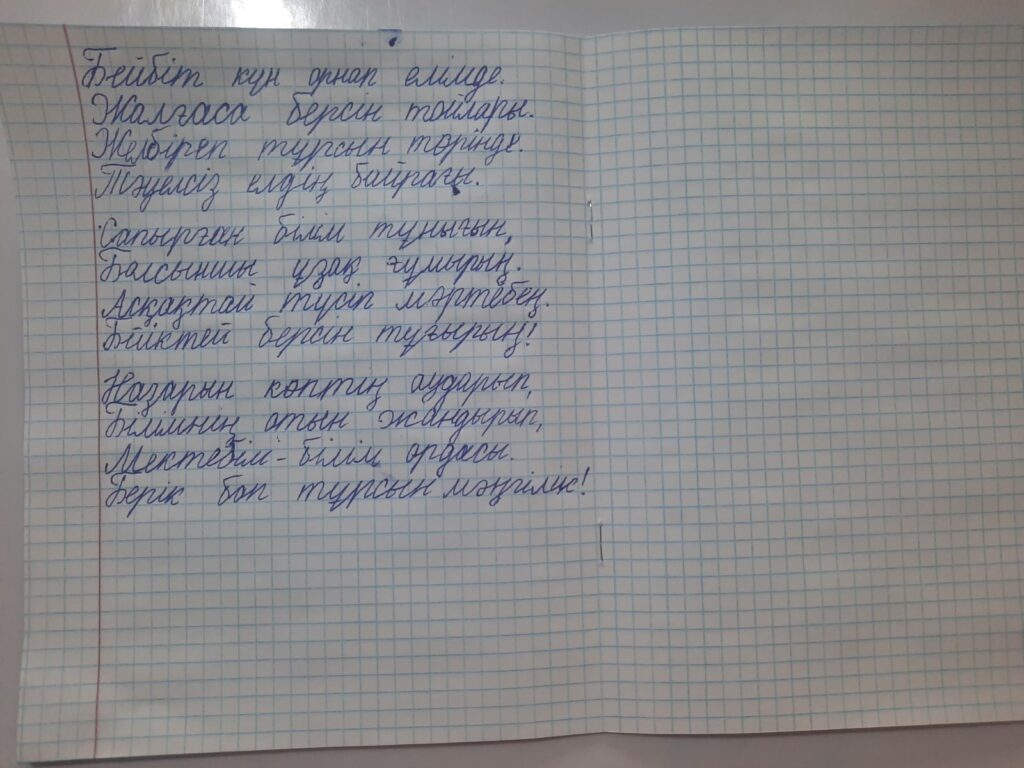 Бейбіт күн орнап елімде.
Жалғаса берсін тойлары.
Желбіреп тұрсын төрінде.
Тәуелсіз елдің байрағы.
Сапырған білім тұнығын,
Болсыншы ұзақ ғұмырың.
Асқақтай түсіп мәртебең.
Бійктей берсін тұғырың!
Назарын көптің аударып,
Білімнің отын жандырып,
Мектебім - білім ордасы.
Берік боп тұрсын мәңгілік!